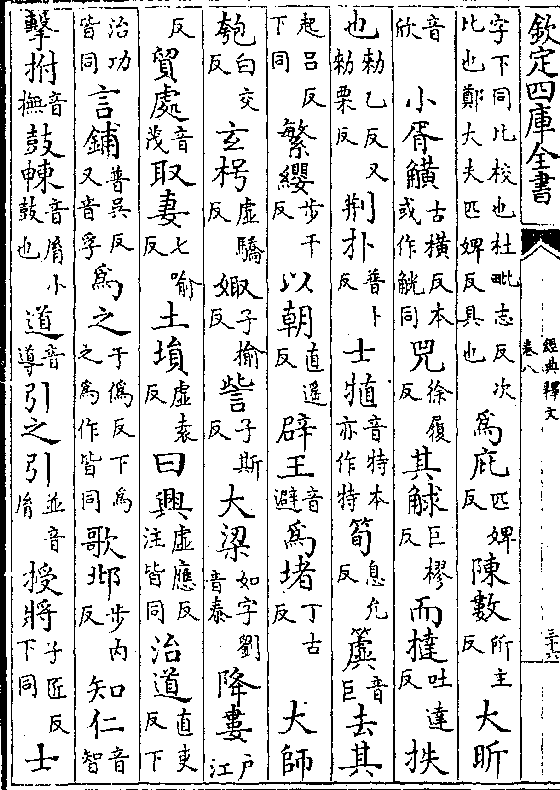 欽定四庫全書
經典釋文
卷八
三十六
字下同比校也杜毗志反次比也鄭大夫匹婢反具也為庇匹婢反陳數所主反大昕
音欣小胥觵古橫反本或作觥同兕徐履反其觩巨樛反而撻吐達反抶
也勑乙反又勑栗反荆扑普卜反士犆音特本亦作特筍息允反簴音巨去其
起呂反下同繁纓步干反以朝直遥反辟王音避為堵丁古反大師
匏白交反玄枵虛驕反娵子榆反訾子斯反大梁如字劉音泰降婁戶江
反貿處音茂取妻七喻反土塤虛袁反曰興虛應反注皆同治道直吏反下
治功皆同言鋪普吳反又音孚為之于偽反下為之為作皆同歌邶步內反知仁音智
擊拊音撫鼓朄音胤小鼓也道音導引之引並音胤授將子匠反下同士